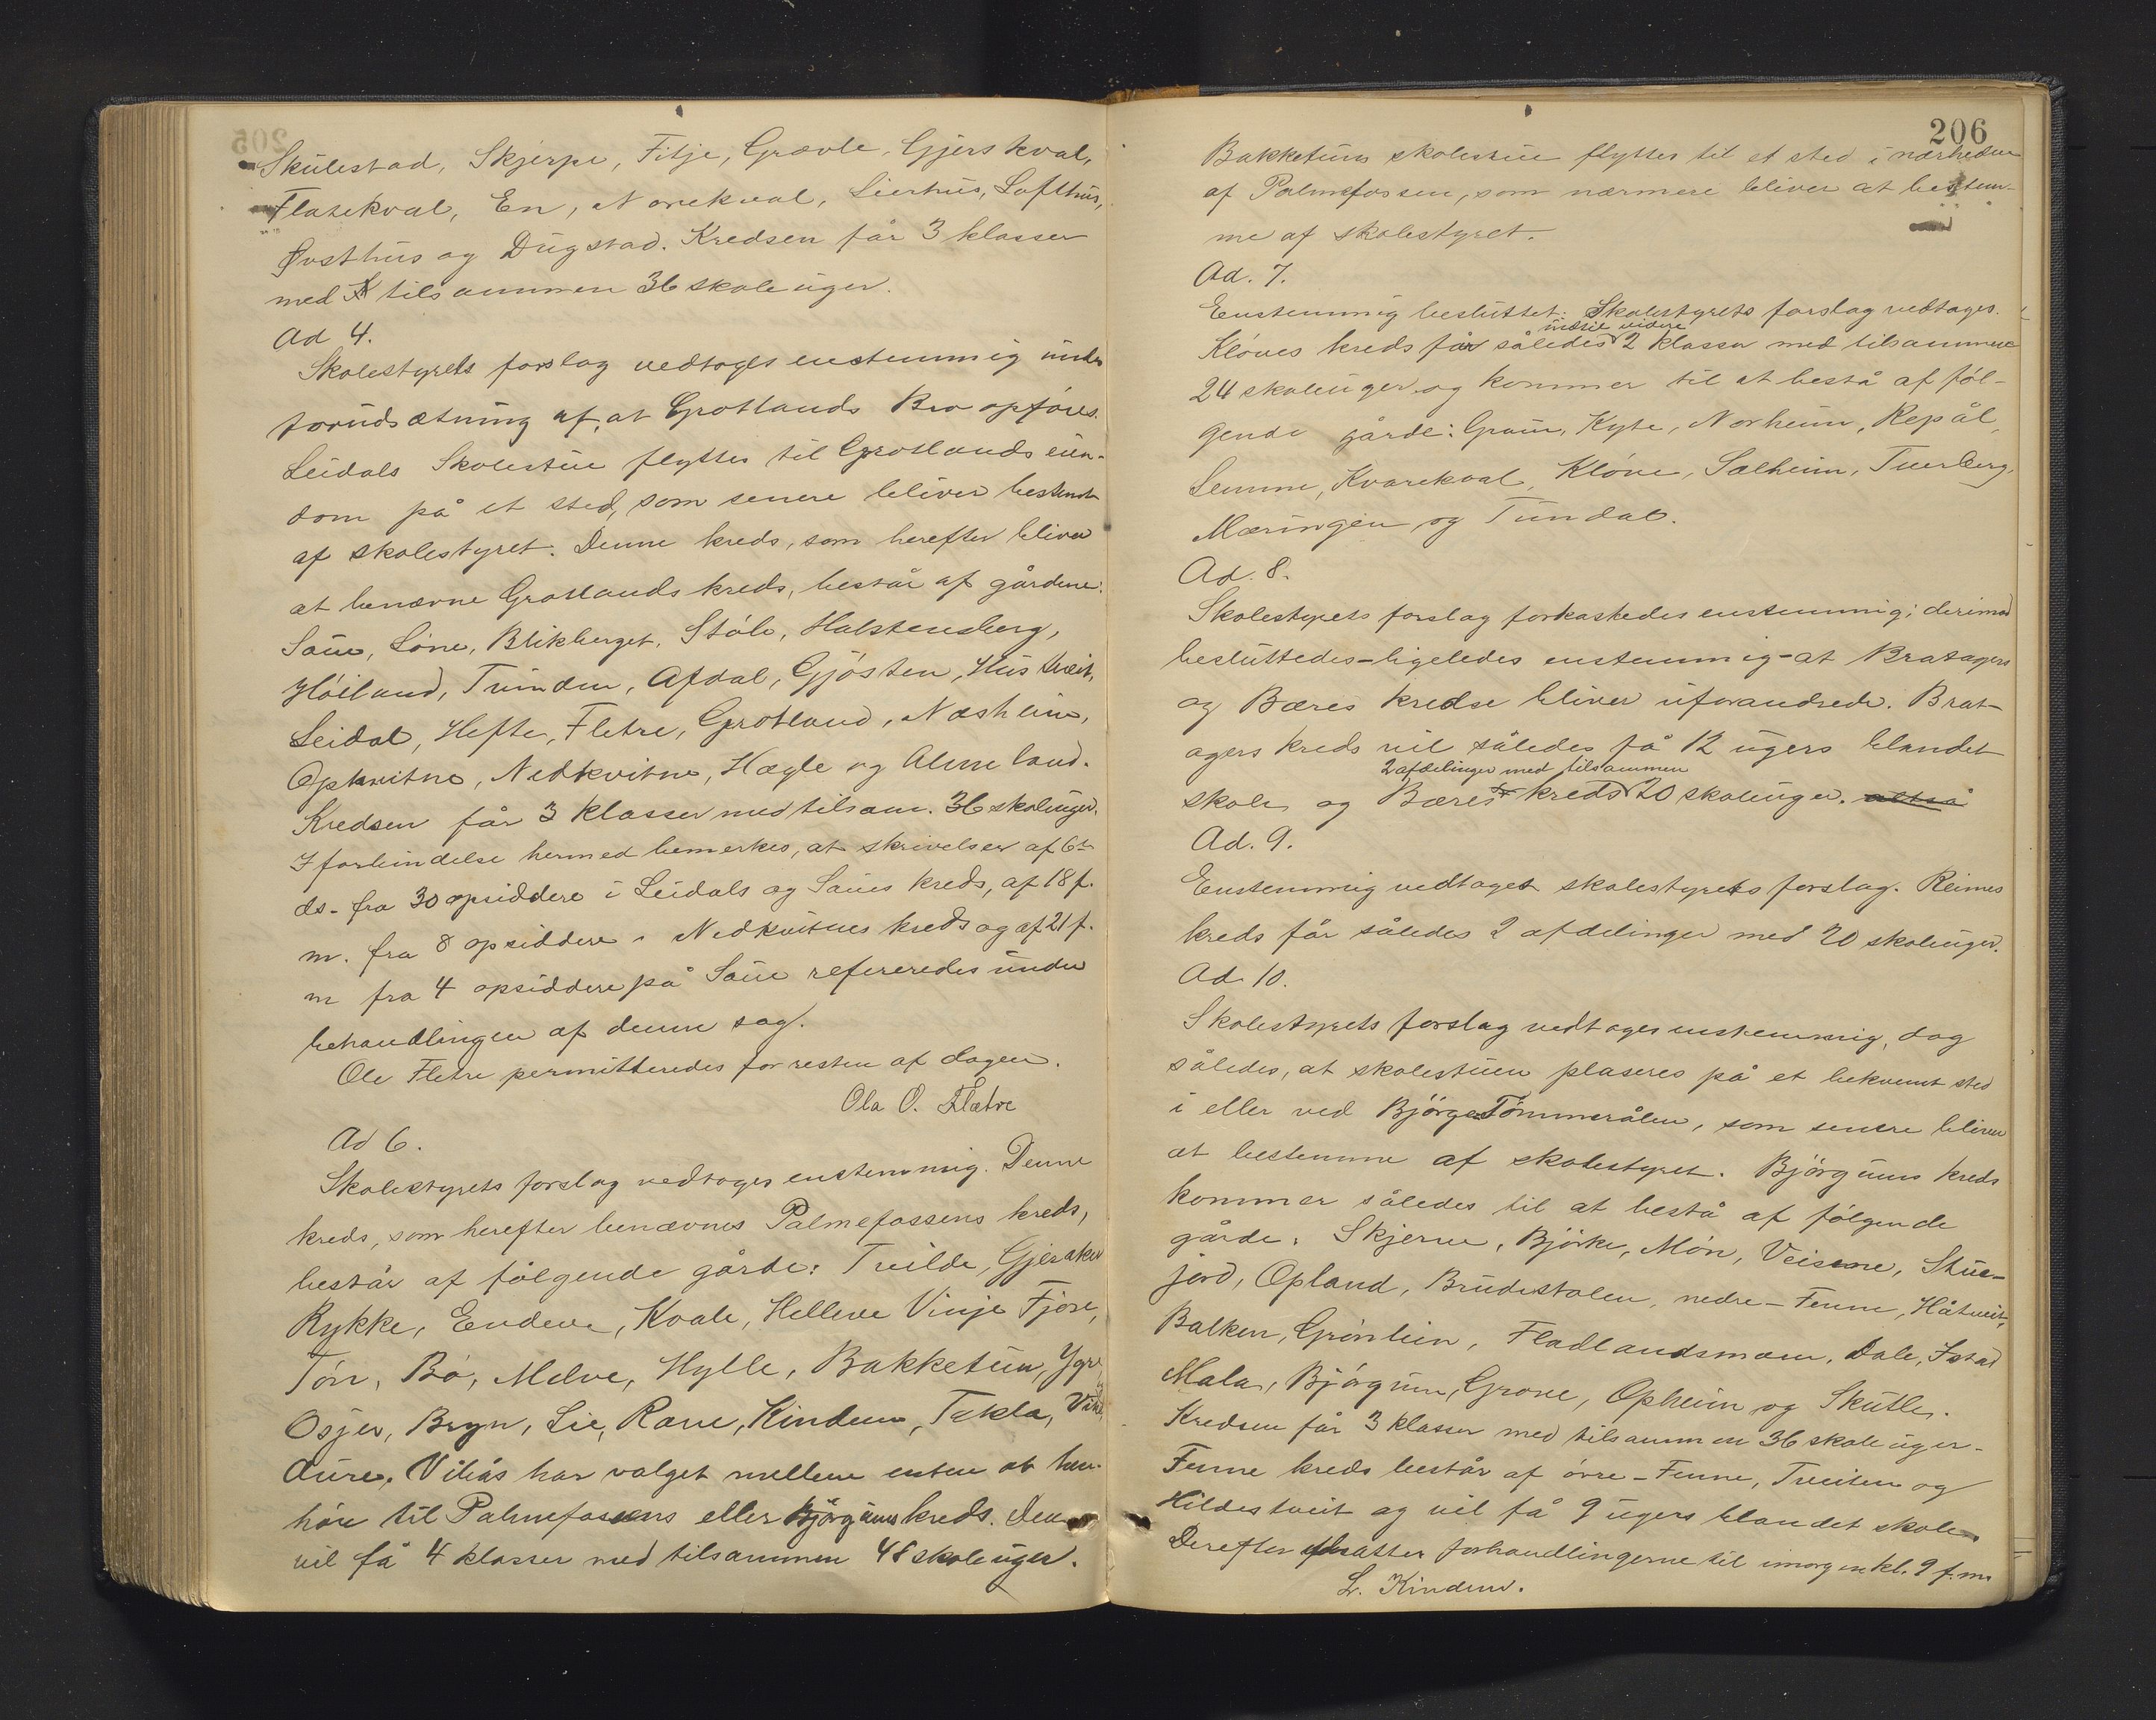 Skulestad, Skjerpe, Fitje, Grævle, Gjerskval,
Flatekval, En, Norekval, Lierhus, Lofthus,
Øvsthus og Dugstad. Kredsen får 3 klasser
med tilsammen 36 skoleuger.
Ad 4.
Skolestyrets forslag vedtoges enstemmig under
forudsætning af, at Grotlands Bro opføres.
Leidals Skolestue flyttes til Grotlands eien-
dom på et sted, som senere bliver bestemt
af skolestyret. Denne kreds, som herefter bliver
at benævne Grotlands kreds, består af gårdene:
Saue, Lóne, Blikberget, Stóle, Halstensberg,
Hóiland, Trinden, Afdal, Gjósten, Hustveit,
Leidal, Hefte, Fletre, Grotland, Næsheim,
Opkvitne, Nedkvitne, Hægle og Almeland.
Kredsen får 3 klasser med tilsam. 36 skoleuger.
I forbindelse hermed bemerkes, at skrivelser af 6te
ds. fra 30 opsiddere i Leidals og Saues kreds, af 18 f.
m. fra 8 opsiddere i Nedkvitnes kreds og af 21 f.
m fra 4 opsiddere på Saue refereredes under
behandlingen af denne sag.
Ole Fletre permitteredes for resten af dagen.
Ola O. Flætre
Ad 6.
Skolestyrets forslag vedtoges enstemmig. Denne
kreds, som herefter benævnes Palmefossens kreds,
består af fólgende gårde: Tvilde, Gjeraker
Rykke, Endeve, Kvale, Helleve Vinje Fjose,
Tón, Bó, Melve, Hylle, Bakketun, Ygre,
Osjer, Bryn, Lie, Rone, Kindem, Tekla, Vike,
Aure. Vikås har valget mellem enten at hen-
hóre til Palmefossens eller Bjórgums kreds. Den
vil få 4 klasser med tilsammen 48 skoleuger.
206
Bakketuns skolestue flyttes til et sted i nærheden
af Palmefossen, som nærmere bliver at bestem-
me af skolestyret.
Ad. 7.
Enstemmig besluttet: Skolestyrets forslag vedtages.
indtil videre
Klóves kreds får således 2 klasser med tilsammen
24 skoleuger og kommer til at bestå af fól-
gende gårde: Graue, Kyte, Norheim, Repål,
Lemme, Kvarekval, Klóve, Sælheim, Tverberg,
Mæringen og Tundal.
Ad. 8.
Skolestyrets forslag forkastedes enstemmig; derimod
besluttedes - ligeledes enstemmig - at Bratagers
og Bæres kredse bliver uforandrede. Brat-
agers kreds vil således få 12 ugers blandet
2 afdelinger med tilsammen
skole og Bæres kreds 20 skoleuger. altså
Ad. 9.
Enstemmig vedtaget skolestyrets forslag. Reimes
kreds får således 2 afdelinger med 20 skoleuger.
Ad 10.
Skolestyrets forslag vedtoges enstemmig, dog
således, at skolestuen plaseres på et bekvemt sted
i eller ved Bjórge-Tómmerålen, som senere bliver
at bestemme af skolestyret. Bjórgums kreds
kommer således til at bestå af fólgende
gårde: Skjerve, Bjórke, Món, Veisene, Stue-
jord, Opland, Brudestolen, nedre-Fenne, Håtveit,
Balken, Grónlien, Fladlandsmoen, Dale, Istad
Mala, Bjórgum, Grove, Opheim og Skutle.
Kredsen får 3 klasser med tilsammen 36 skoleuger.
Fenne kreds består af óvre-Fenne, Tveiten og
Hildestveit og vil få 9 ugers blandet skole.
Derefter udsattes forhandlingerne til imorgen kl. 9 f.m.
L. Kindem.